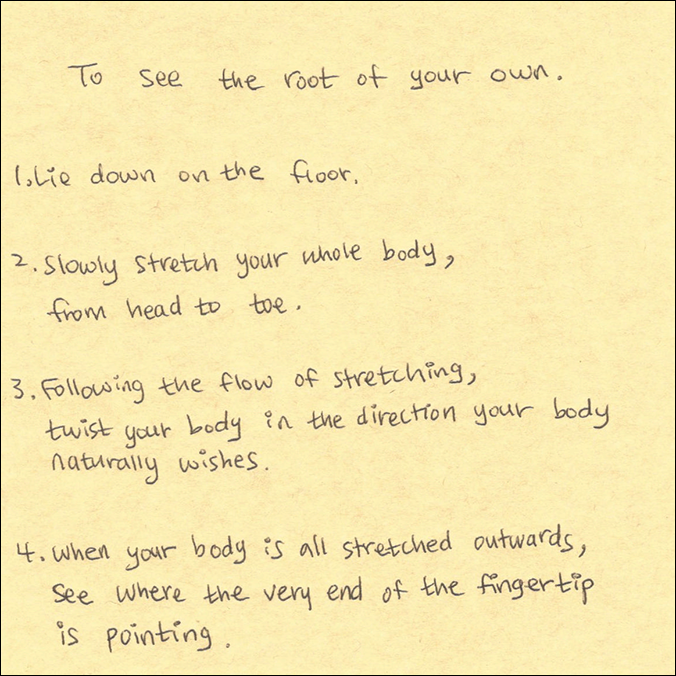 To see the root of your own.
1. Lie down on the floor.
2. Slowly stretch your whole body,
from head to toe.
3. Following the flow of stretching,
twist your body in the direction your body
naturally wishes.
4. When your body is all stretched outwards,
see where the very end of the fingertip
is pointing.